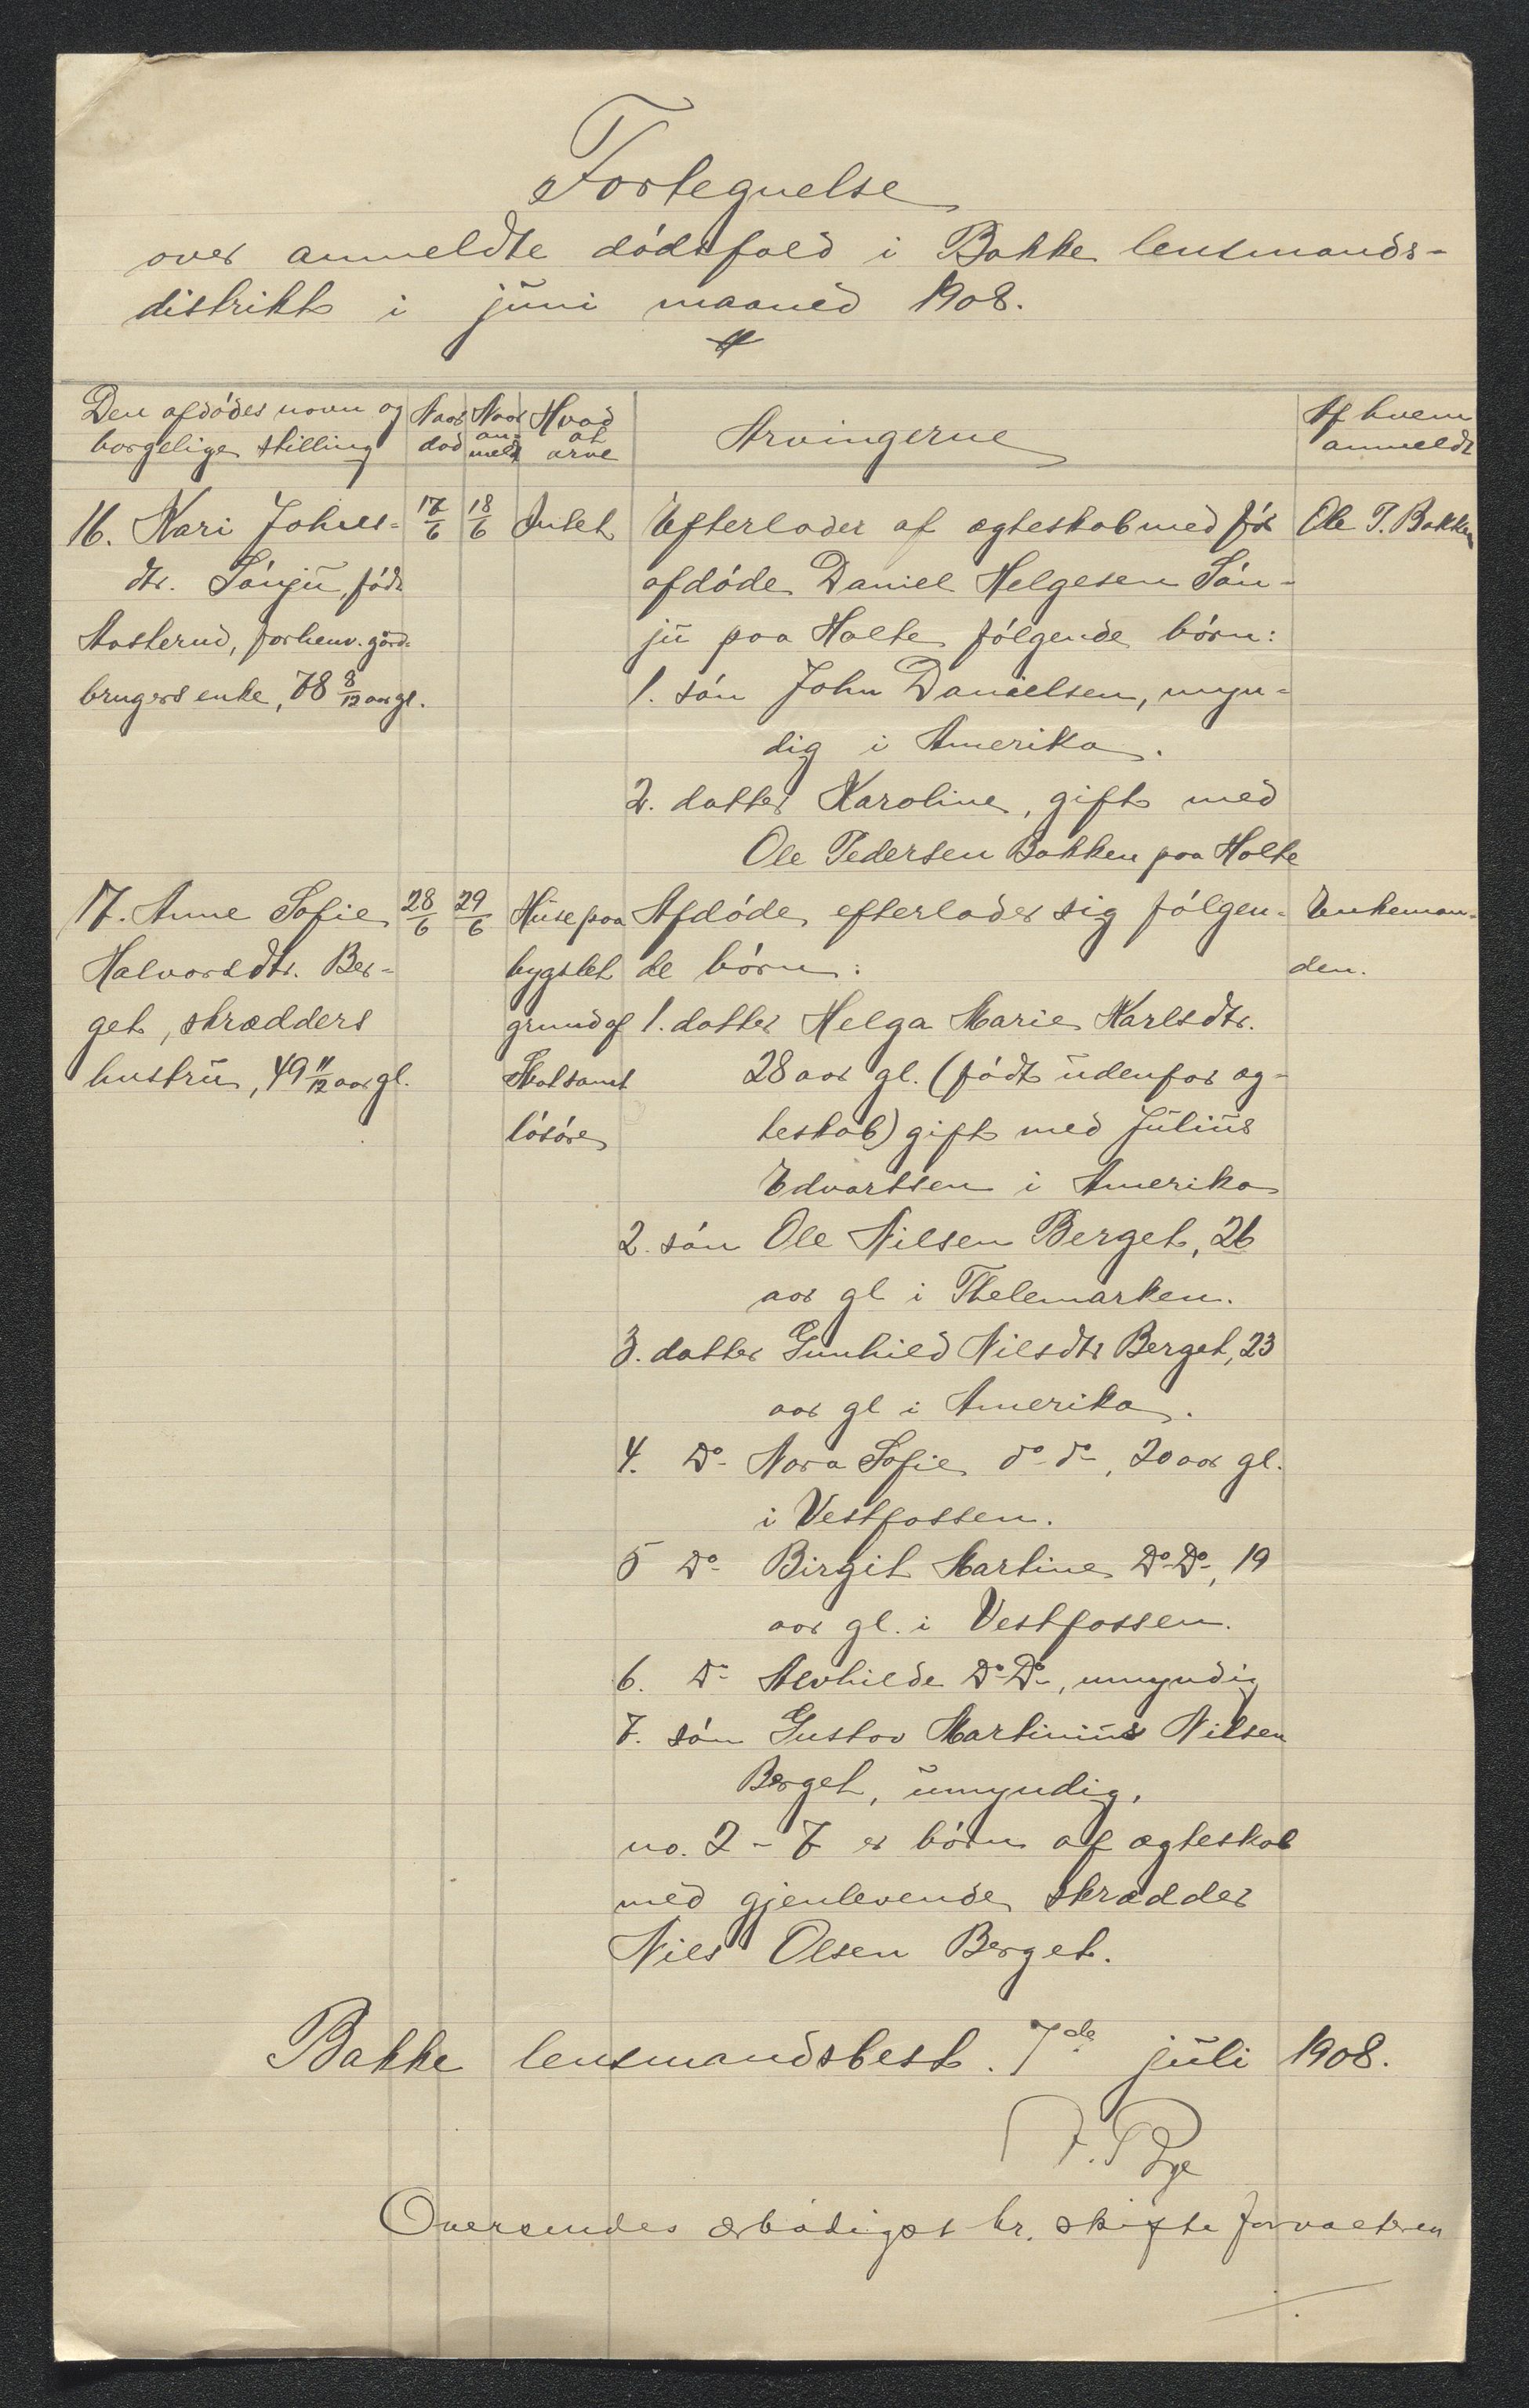 Fortegnelse
over anmeldte dødsfald i Bakke lensmands-
distrikt i juni maaned 1908.
Den afdødes navn og borgelige stilling
Naar død
Naar an- meldt
Hvad at arve
Arvingerne
Af hvem anmeldt
16. Kari Johns-
dtr. Sønju, født
Aasterud, forhenv. gård-
brugers enke, 78 8/12 aar gl.
17/6
18/6
Intet
Efterlader af ægteskab med før
afdøde Daniel Helgesen Søn-
ju paa Holte følgende børn:
1. søn John Danielsen, myn-
dig i Amerika.
2. datter Karoline, gift med
Ole Pedersen Bakken paa Holte
Ole P. Bakken
17. Anne Sofie
Halvorsdtr. Ber-
get, skrædders
hustru, 49 11/12 aar gl.
28/6
29/6
Huse paa
bygslet
grund af
samt
løsøre
Afdøde efterlader sig følgen-
de børn:
1. datter Helga Marie Karlsdtr.
28 aar gl. (født udenfor æg-
teskab) gift med Julius
Edvartsen i Amerika
2. søn Ole Nilsen Berget, 26
aar gl i Thelemarken.
3. datter Gunhild Nilsdtr Berget, 23
aar gl i Amerika.
4. Do- Nora Sofie do- do-, 20 aar gl.
i Vestfossen.
5 Do- Birgit Martine Do- Do-, 19
aar gl. i Vestfossen.
6. Do- Alvhilde Do- Do-, umyndig
7. søn Gustav Martinius Nilsen
Berget, umyndig.
no. 2 - 7 er børn af ægteskab
med gjenlevende skrædder
Nils Olsen Berget.
Enkeman-
den.
Bakke lensmandsbest. 7de juli 1908.
Oversendes ærbødigst hr. skifteforvalteren